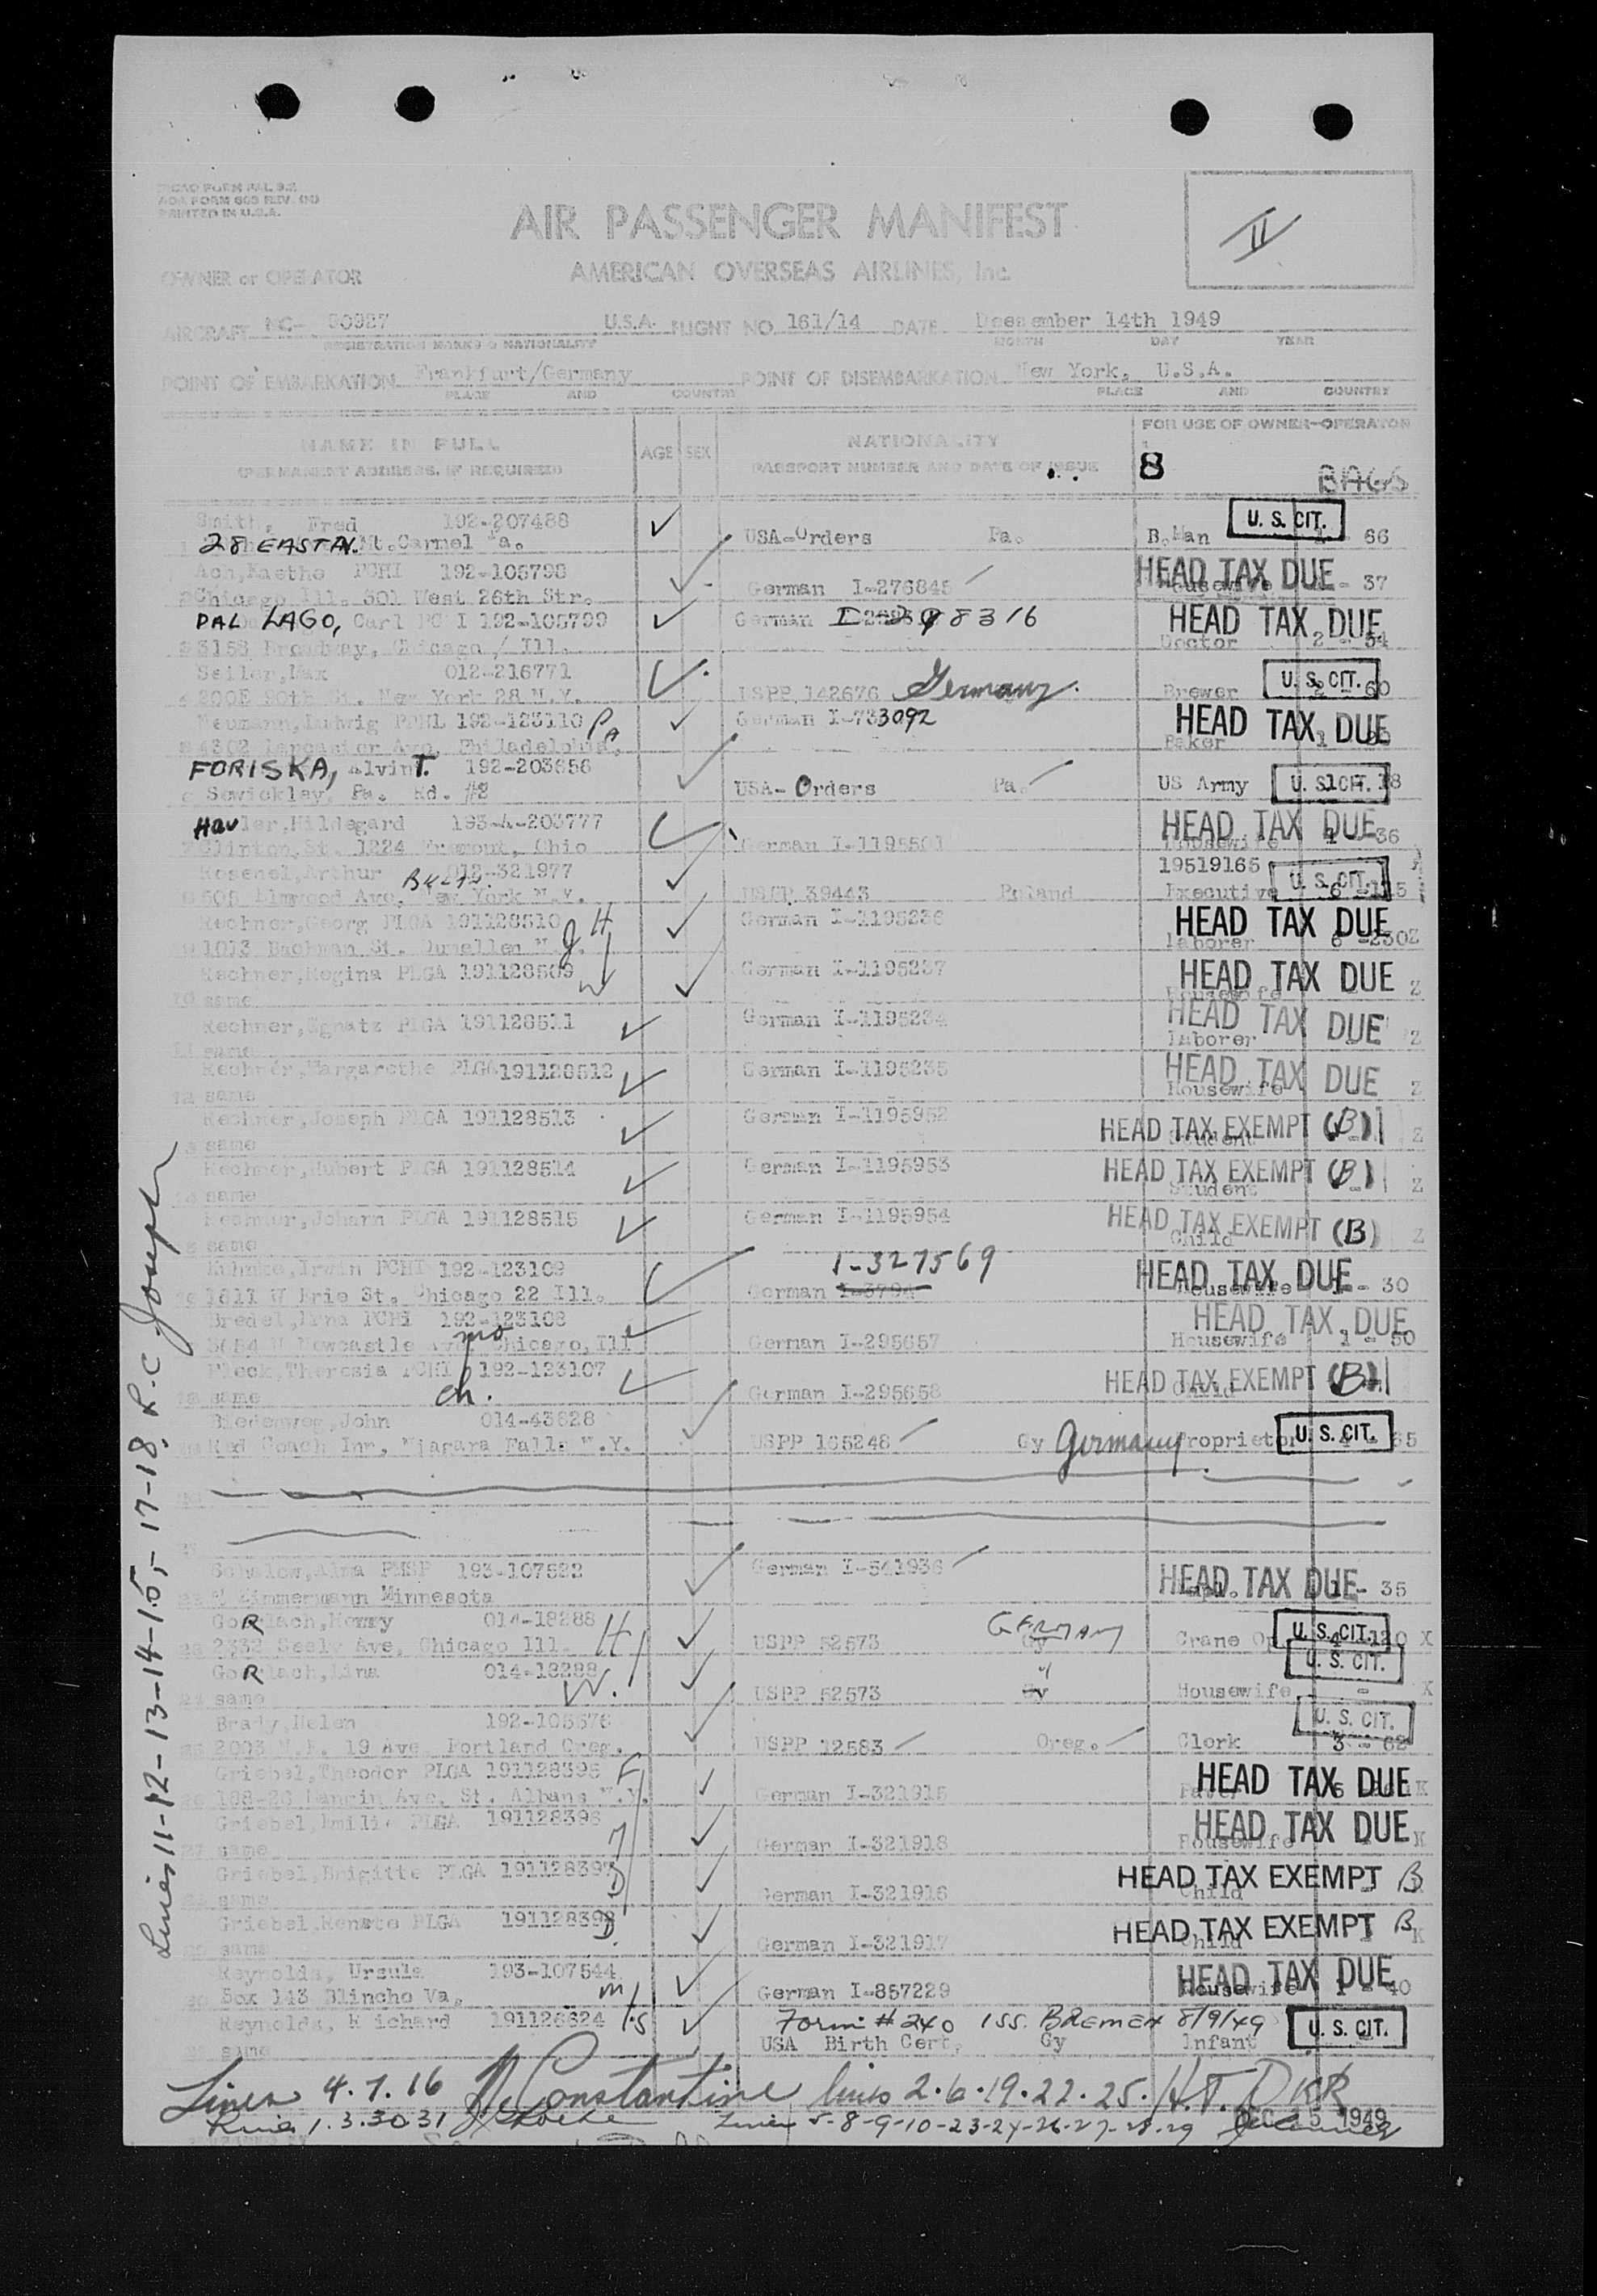 ICAO FORM PAL 9.2
AOA FORM 603 REV.
PRINTED IN U.S.A.
AIR PASSENGER MANIFEST
II
OWNER or OPERATOR
AMERICAN OVERSEAS AIRLINES, Inc.
AIRCRAFT NC- 90927 U.S.A. FLIGHT NO. 161/14 DATE December 14th 1949
REGISTRATION MARKS & NATIONALITY MONTH DAY YEAR
POINT OF EMBARKATION Frankfurt/Germany POINT OF DISEMBARKATION New York, U.S.A.
PLACE AND COUNTRY PLACE AND COUNTRY
NAME IN FULL AGE SEX NATIONALITY FOR USE OF OWNER-OPERATOR
(PERMANENT ADDRESS, IF REQUIRED) PASSPORT NUMBER AND DATE OF ISSUE 8 BAGS
Smith, Fred 192-207488 U. S. CIT.
28 EAST AV. Mt.Carmel Pa. USA-Orders Pa. B.Man 66
Ach,Kaethe PCHI 192-105798 HEAD TAX DUE
Chicago Ill. 301 West 26th Str. German I-276845 Housewife - 37
DAL LAGO, Carl PCHI 192-105799 German I- 98316 HEAD TAX DUE
3158 Broadway, Chicago / Ill. Doctor 2 - 54
Seiler,Max 012-216771 U. S. CIT.
4 200E 90th St. New York 28 N.Y. USPP 142676 Germany. Brewer 2 - 60
Neumann,Ludwig PPHL 192-123110 PA German I-733092 HEAD TAX DUE
4302 Lancaster Ave, Philadelphia, Baker 1
FORISKA, Alvin T. 192-203656
6 Sewickley, Pa. Rd. #2 USA- Orders Pa. US Army U. S. CIT. 18
Hauler,Hildegard 193-4-203777 HEAD TAX DUE
Clinton,St. 1224 Fremont, Ohio German I-1195501 Housewife 1 - 36
Rosenel,Arthur 012-321977 19519165 U. S. CIT.
8 605 Elmwood Ave, New York N.Y. USPP 39443 Poland Executive 6
Rechner,Georg PLGA 191128510 H German I-1195236 HEAD TAX DUE
1013 Bachman St. Dunellen N.J. laborer 6 -230Z
Rechner,Regina PLGA 191128509 W German I-1195237 HEAD TAX DUE
10 same Housewife - Z
Rechner,Ignatz PLGA 191128511 German I-1195234 HEAD TAX DUE
11 same laborer - Z
Rechner,Margarethe PLGA 191128512 German I-1195235 HEAD TAX DUE
12 same Housewife - Z
Rechner,Joseph PLGA 191128513 German I-1195952 HEAD TAX EXEMPT (B)
same Student Z
Rechner,Hubert PLGA 191128514 German I-1195953 HEAD TAX EXEMPT (B)
same Student Z
Rechner,Johann PLGA 191128515 German I-1195954 HEAD TAX EXEMPT (B)
same Child Z
Kuhnke,Irwin PCHI 192-123109 1-327569 HEAD TAX DUE
1611 W Erie St. Chicago 22 Ill. German I-3794 Housewife 1 - 30
Bredel,Erna PCHI 192-123108 HEAD TAX DUE
3654 N Newcastle Ave Chicago,Ill mo German I-295657 Housewife 1 - 50
Fleck,Theresia PCHI 192-123107 HEAD TAX EXEMPT (B)
18 same ch. German I-295658 Child
Biedenweg,John 014-43628
Red Coach Inn, Niagara Falls N.Y. USPP 165248 Gy Germany Proprietor U. S. CIT. 65
Schulow,Alma PMSP 193-107582 German I-541936 HEAD TAX DUE
Zimmermann Minnesota 1 - 35
GoRlach,Henry 014-18288 H GERMANY U. S. CIT.
2332 Seely Ave, Chicago Ill. USPP 52573 Gy Crane Op. 120 X
GoRlach,Lina 014-18288 W. " U. S. CIT.
24 same USPP 52573 Gy Housewife - X
Brady,Helen 192-105576 U. S. CIT.
2003 N.E. 19 Ave Portland Oreg. USPP 12583 Oreg. Clerk 3 - 62
Griebel,Theodor PLGA 191128395 F HEAD TAX DUE
26 188-26 Ave, St. Albans N.Y. German I-321915 K
Griebel,Emilie PLGA 191128396 M HEAD TAX DUE
27 same German I-321918 Housewife K
Griebel,Brigitte PLGA 191128397 D HEAD TAX EXEMPT B
same German I-321916 Child
Griebel,Renate PLGA 191128398 D. HEAD TAX EXEMPT B
same German I-321917 Child K
Reynolds, Ursula 193-107544 HEAD TAX DUE
Box 143 Blincho Va. m German I-857229 Housewife 1 - 40
Reynolds, Richard 191126624 s Form # 240 ISS. BREMEN 8/9/49 U. S. CIT.
same USA Birth Cert, Gy Infant
Lines 11-12-13-14-15-17-18. R.C. Joseph
Lines 4.7.16 N. Constantine lines 2.6.19.22.25. H.T.D
Lines 1.3.30 31 Lines 5-8-9-10-23-24-26-27-28-29 DEC 15 1949